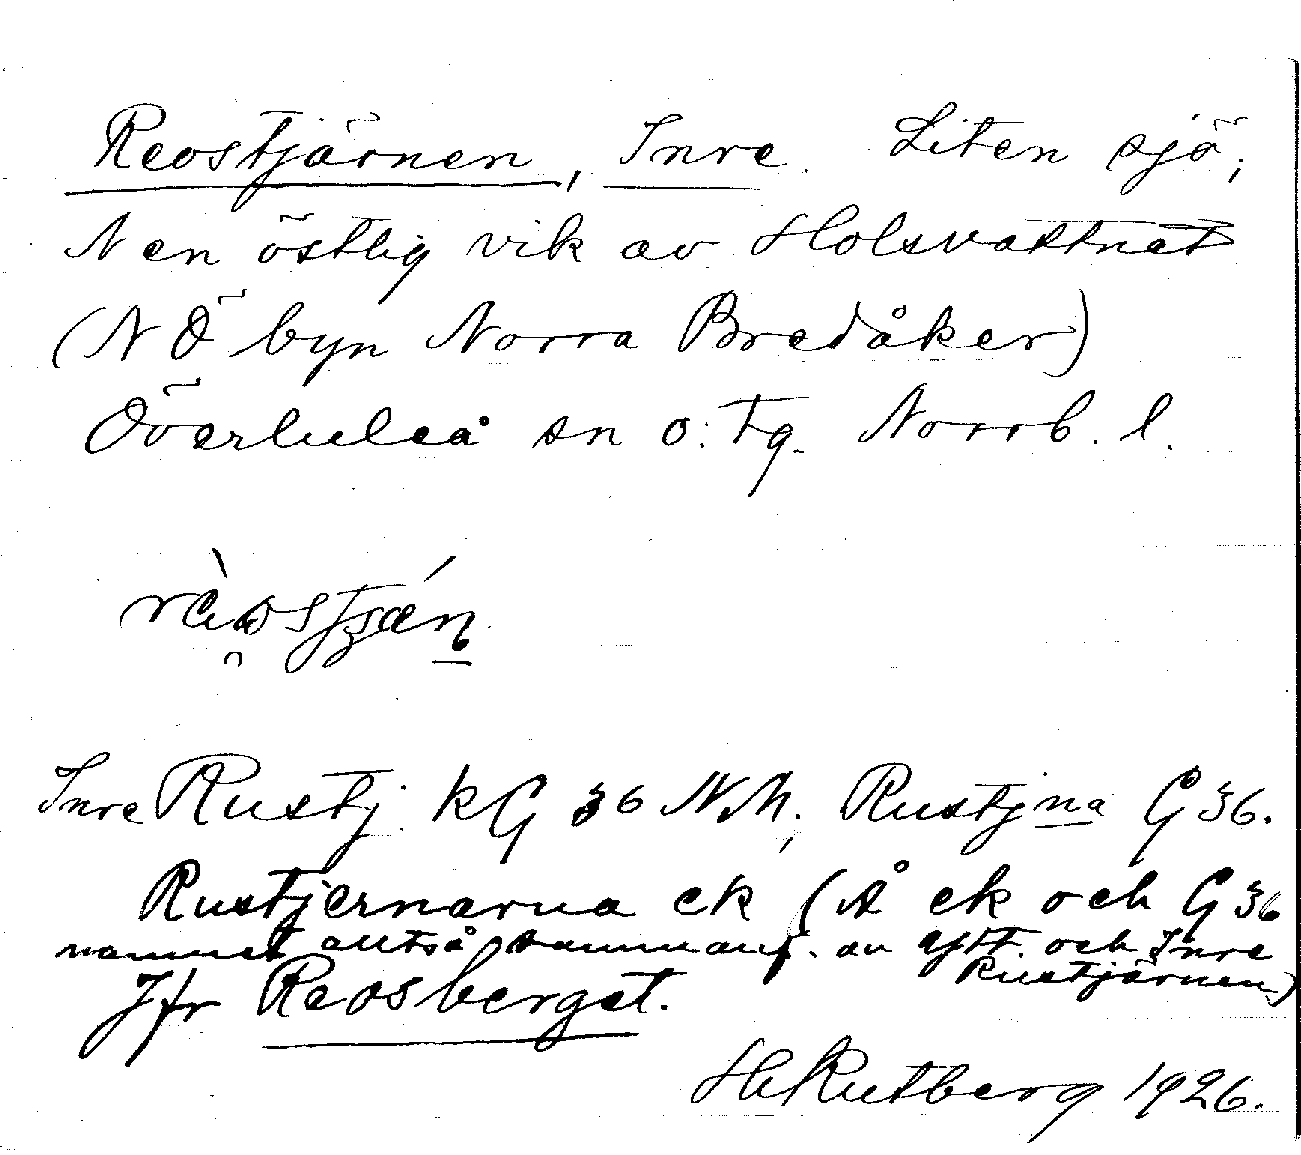 Reostjärnen, Inre. Liten sjö;
N en östlig vik av Holsvattnet
(N Ö byn Norra Bredåker)
Överluleå sn o. tg. Norrb. l.
Inre Rustj. kG 36 NM; Rustjna G 36.
Rustjernarna ek (Å ek och G 36
namnet alltså sammanf. av Ytt. och Inre
Rustjärnen)
Jfr Reosberget.
H Rutberg 1926.